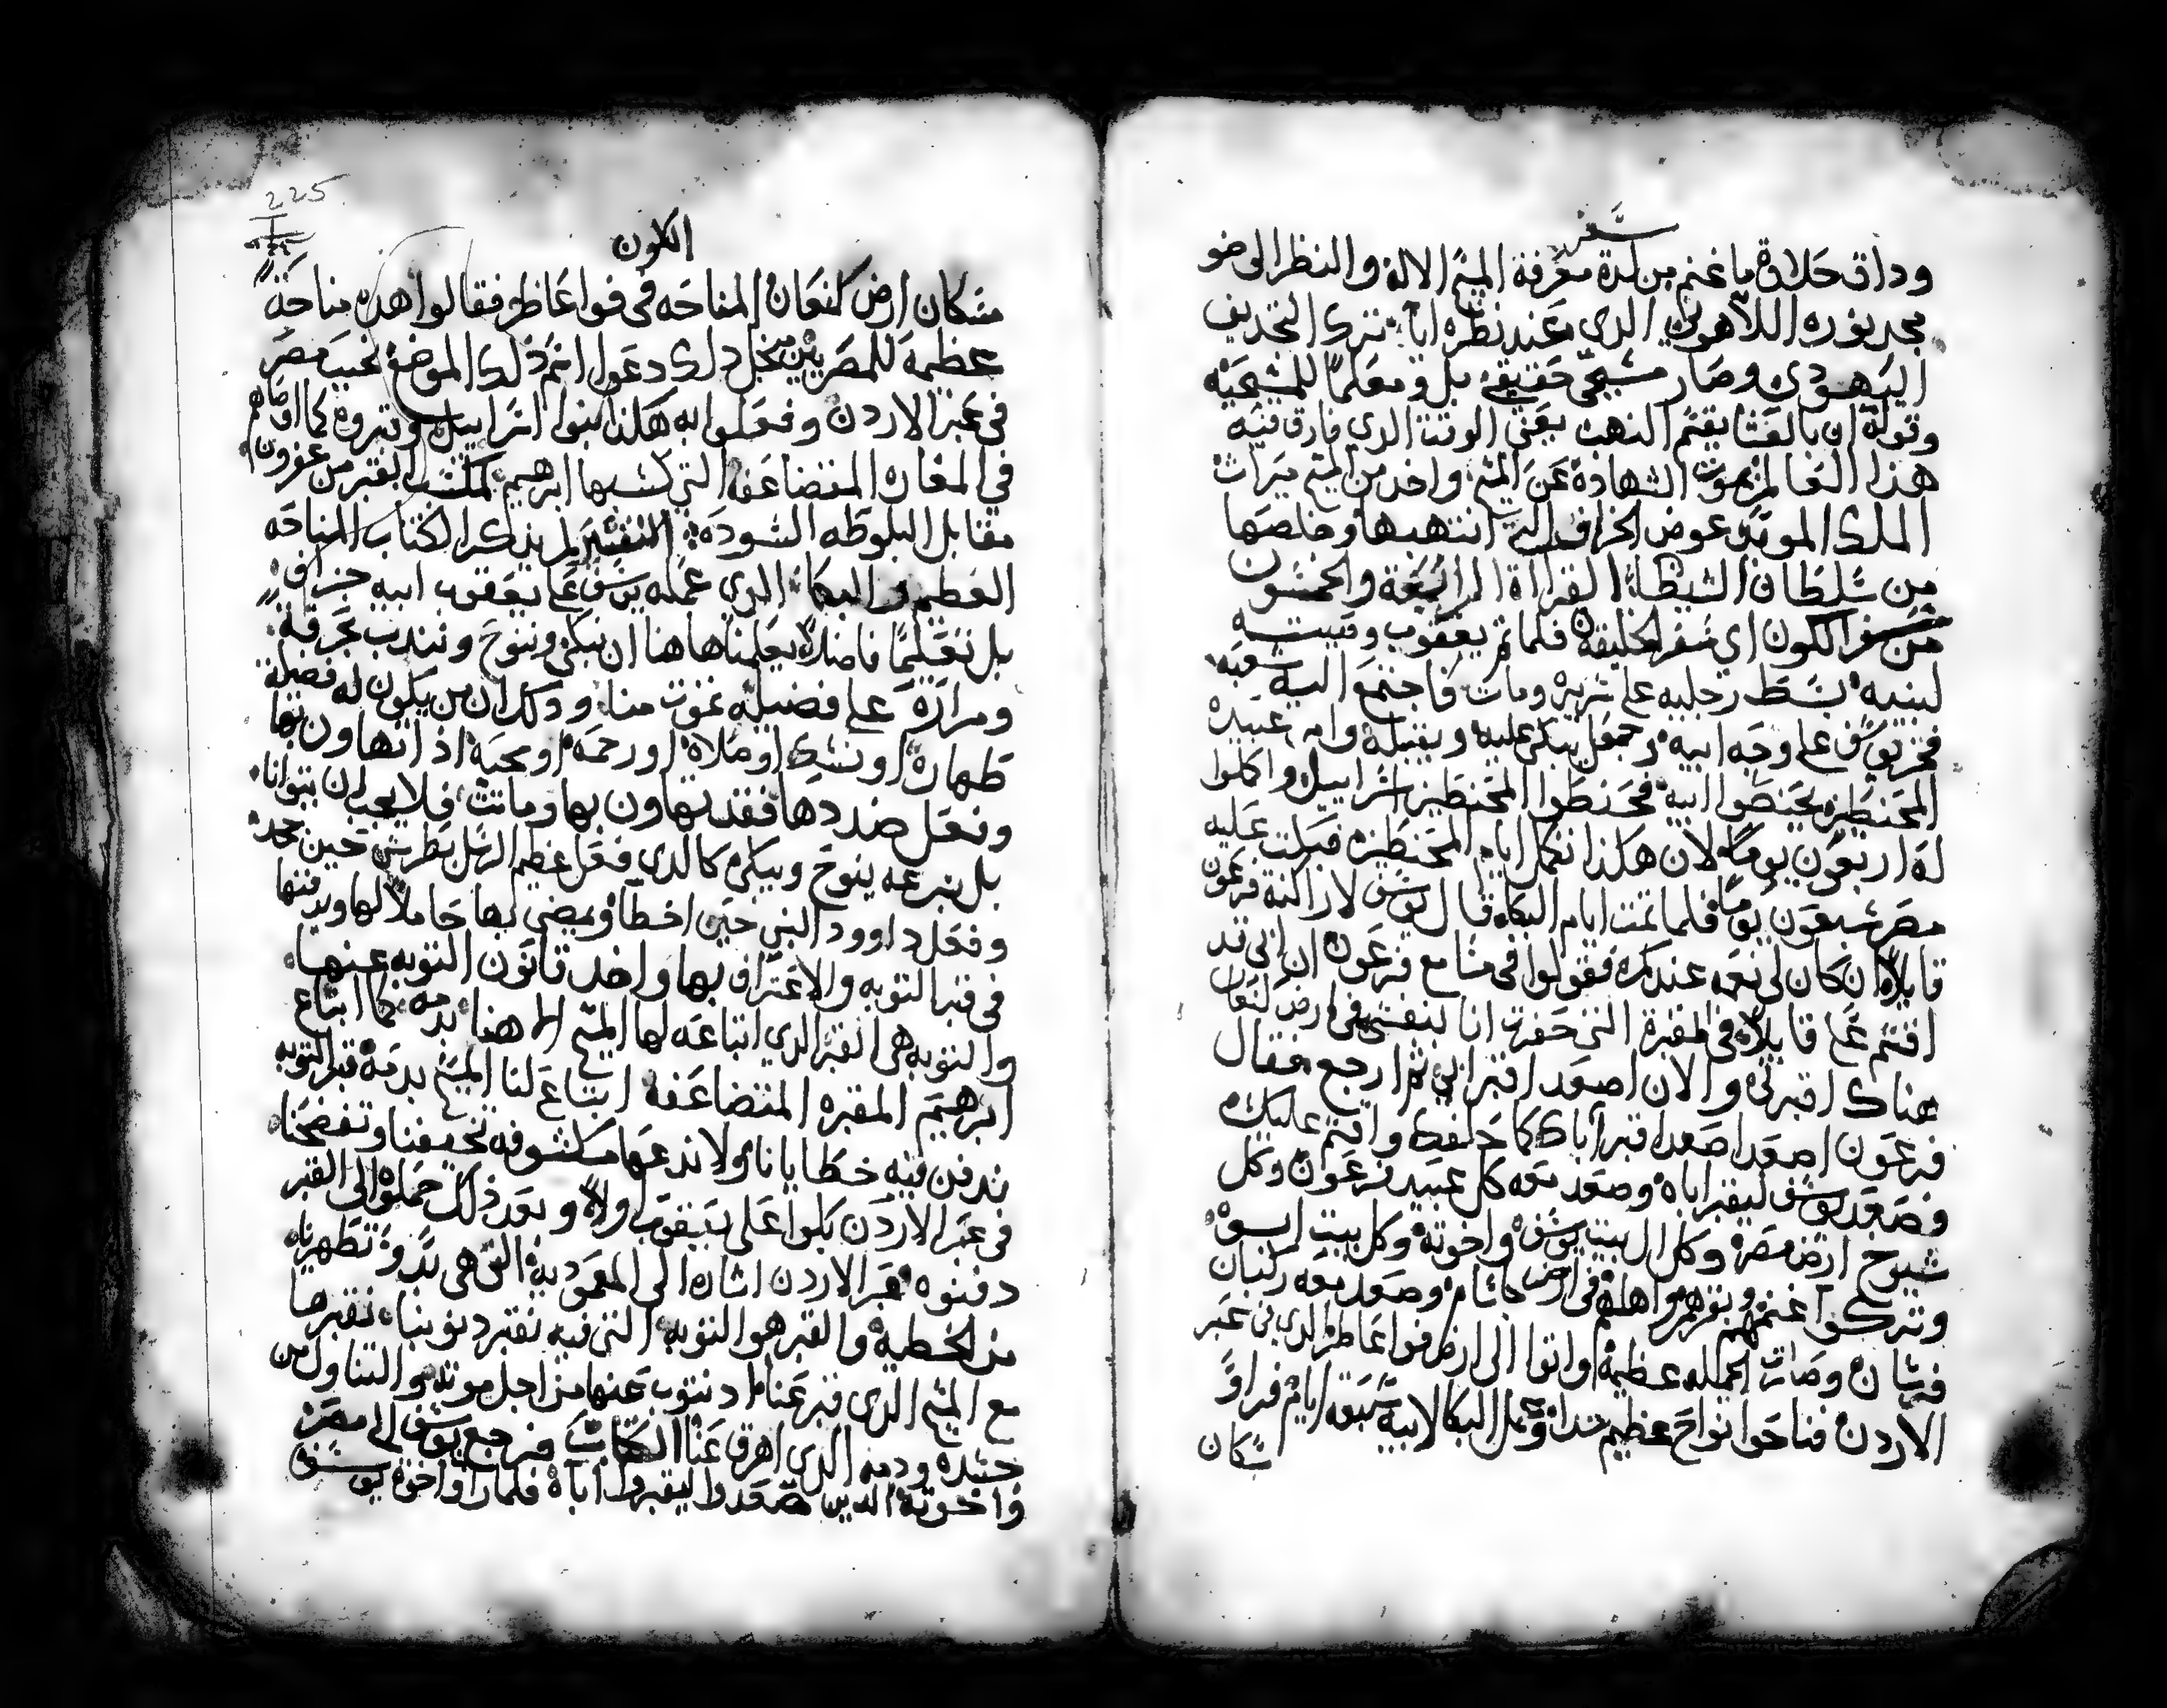 سفر
وداق حلاوة ما غنم من لدة معرفة المسيح الاله والنظر الى ضو
مجد نوره اللاهوتي الدي عند نظره اياه ترك التجديف
اليهودي وصار مسيحي حقيقي بل ومعلما للمسيحيه
وقوله ان بالعشا يقسم النهب يعني الوقت الدي فارق فيه
هذا العالم بموت الشهادة عن المسيح واخد من المسيح ميرات
الملك الموبد عوض الخراف التي انتهبها وخلصها
من سلطان الشيطان القراة الرابعة والخمسون
من سفر الكون اي سفر الخليقة فلما تم يعقوب وصيته
لبنيه بسط رجليه على سريره ومات فاجتمع اليه شعبه
فخر يوسف على وجه ابيه وجعل يبكي عليه ويقبله وامر عبيده
المحنطين يحنطوا ابيه فحنطوا المحنطين اسراييل واكملوا
له اربعون يوما لان هكذا تكمل ايام المحنطين فبكت عليه
مصر سبعون يوما فلما تمت ايام البكاء قال يوسف لاراكنة فرعون
قايلا ان كان لي نعمه عندكم فقولوا في مسامع فرعون ان ابي قد
اقسم علي قايلا في المقبرة التي حفرت انا لنفسي في ارض كنعان
هناك اقبرني والان اصعد اقبر ابي ثم ارجع فقال
فرعون اصعد اصعد اقبر اباك كما حلفك واقسم عليك
فصعد يوسف ليقبر اباه وصعد معه كل عبيد فرعون وكل
شيوخ ارض مصر وكل ال بيت يوسف واخوته وكل بيت ابيه
وتركوا غنمهم وبقرهم واهلهم في ارض جاسام وصعد معه ركبان
فرسان وصارت الجمله عظيمة واتوا الى ارض فوا عاطر الدي في عبر
الاردن فناحوا نواح عظيم جدا وعمل البكا لابيه سبعة ايام فراوا
سكان
225
الكون
سكان ارض كنعان المناحه في فوا عاطر فقالوا هده مناحة
عظيمة للمصريين من اجل دلك دعوا اسم ذلك الموضع نحيب مصر
في عبر الاردن وفعلوا به هكذا بنوا اسراييل وقبروه كما اوصاهم
في المغاره المتضاعفه التي كسبها ابرهيم لمكسب القبر من عفرون
مقابل البلوطه السوده التفسير لم يذكر الكتاب المناحه
العظيم والبكاء الدي عمله يوسف على يعقوب ابيه جزاف
بل تعليما فاضلا يعلمنا هاهنا ان نبكي وننوح ونندب بحرقة
ومرارة على فضيلة تموت منا ودلك ان من يكون له فضيلة
طهارة او نسك او صلاة او رحمه او محبه اذا تهاون بها
وفعل ضددها فقد تهاون بها وماتت فلا يجب ان يتوانا
بل بسرعه ينوح ويبكي كالدي فعل عظيم الرسل بطرس حين جحد
وفعل داوود النبي حين اخطا ويمضي بها حاملا لها ويدفنها
في قبر التوبه والاعتراف بها واخد قانون التوبه عنها
والتوبه هي القبر الدي ابتاعه لها المسيح الاهنا بدمه كما ابتاع
ابرهيم المقبره المتضاعفه ابتاع لنا المسيح بدمه قبر التوبه
ندفن فيه خطايانا ولا ندعها مكشوفه تجيفنا وتفضحنا
في عبر الاردن بكوا على يعقوب اولا وبعد ذلك حملوه الى القبر
دفنوه عبر الاردن اشاره الى المعمودية التي هي بدو تطهيرنا
من الخطية والقبر هو التوبه التي فيه نقبر دنوبنا نقبرها
مع المسيح الدي قبر عنا اد نتوب عنها من اجل موته والتناول من
جسده ودمه الدي اهرق عنا الكتاب فرجع يوسف الى مصر
واخوته الدين صعدوا ليقبروا اباه فلما راوا اخوة يوسف